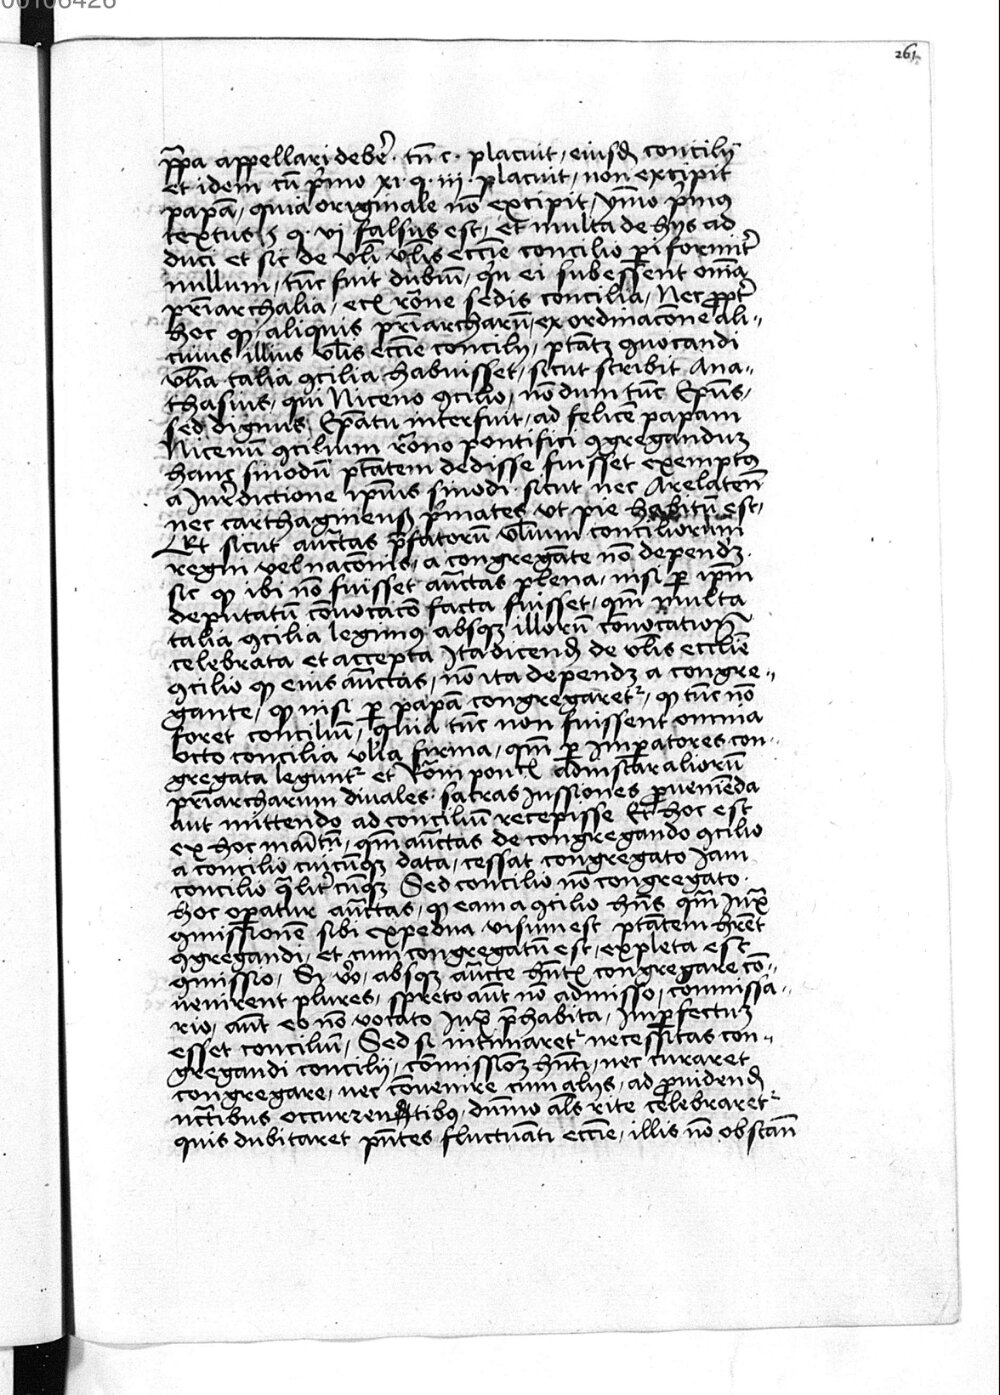 00106426
261
ppa appellari deberet. tn c. placuit, eiusd concilij
et idem cu pmo xi. q. iii placuit, non excipit
papa, quia originale no excipit, ymo pmus
textus q. vi falsus est, et multa de hijs ad
duci et sic de vli vlis eccie concilio
nullum, tuc fuit dubiu, qn ei subessent omia
priarchalia, ecc rone sedis concilia, Nec ppter
hoc q aliquis priarcharu, ex ordinacone ali-
cuius illius vlis eccie concilij, ptatem qvocandi
vlia talia qcilia habuisset, sicut scribit Ana-
thasius, qui Niceno qcilio, nodum tuc Epus,
sed dignus Epatu interfuit, ad felice papam
Nicenu qcilium rono pontifici qgregandum
hanc sinodu ptatem dedisse, fuisset exemptus
a Iurdictione ipius sinodi. sicut nec Arelaten
nec carthaginens pmates, vt pie habitu est,
Et sicut auctas pfatorum vlium conciliorum
regni vel naconis, a congregante no dependet.
sic q ibi no fuisset auctas plena, nisi p ipm
deputatu convocaco facta fuisset, qm multa
talia qcilia legimus absque illoru convocation
celebrata et accepta Ita dicend de vlis ecclie
qcilio q eius auctas, no ita dependet a congre-
gante, q nisi p papa congregaretur, q tuc no
foret conciliu, Quia tuc non fuissent omnia
octo concilia vlia firma, qm p Imperatores con-
gregata leguntur et Rom pontex ad instar aliorum
priarcharum divales. sacras Iussiones pvenienda
aut mittendo ad conciliu recepisse Et hoc est
ex hoc , qm auctas de congregando qcilio
a concilio cuicunque data, cessat congregato Iam
concilio qualitercunque Sed concilio no congregato.
hoc opatur auctas, q eam a qcilio hns qm Iux
qmissione sibi visum est ptatem hret
qgregandi, et cum congregatu est, expleta est
qmissio, Si vo, absque aucte hntis congregare co-
venirent plures, spreto aut no admisso, commissa-
rio, aut eo no vocato Iux phabita, Imperfectum
esset conciliu, Sed si intimaretur necessitas con-
gregandi concilij, commissionem hnti, nec curaret
congregare, nec convenire cum alijs, ad pvidend
nctibus occurrentibus, dummo als rite celebraretur
quis dubitaret pntes fluctuanti eccie, illis no obstan